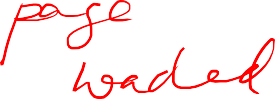 page
waded